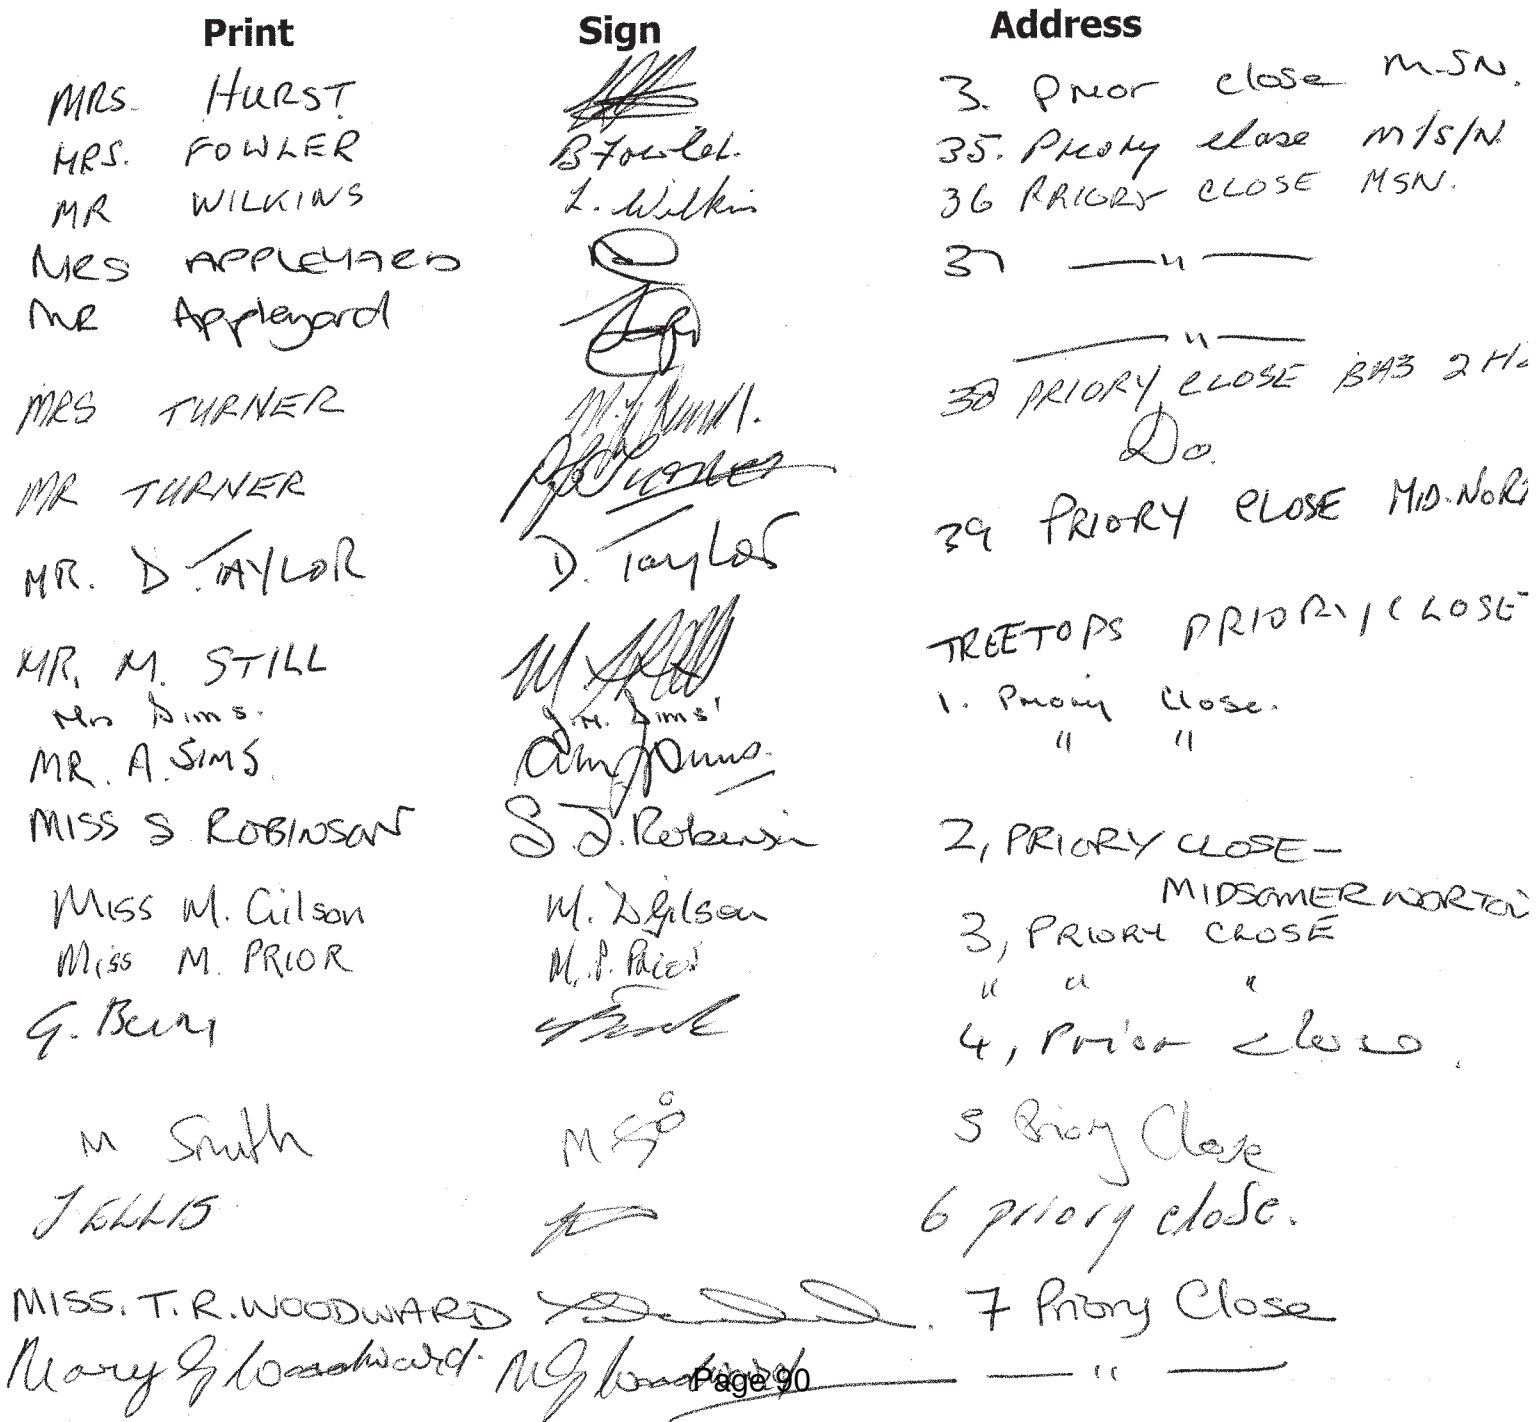 Print Sign Address
MRS. HURST 3. Prior close M-SN.
MRS. FOWLER B Fowler. 35. Priory close M/S/N.
MR WILKINS L. Wilkins 36 PRIORY CLOSE MSN.
MRS APPLEYARD 37 — " —
MR Appleyard — " —
MRS TURNER 38 PRIORY CLOSE BA3 2H
MR TURNER Turner Do.
MR. D. TAYLOR D. Taylor 39 PRIORY CLOSE MID. NOR
MR. M. STILL M TREETOPS PRIORY CLOSE
Mrs Sims. Sims 1. Priory Close.
MR. A. SIMS. " "
MISS S ROBINSON S. J. Robinson 2, PRIORY CLOSE –
MIDSOMER NORTON
Miss M. Gilson M. D Gilson 3, PRIORY CLOSE
Miss M. PRIOR M. P. Prior " " "
G. Berry 4, Prior close.
M Smith M S 5 Priory Close
J ELLIS 6 priory close.
MISS. T. R. WOODWARD 7 Priory Close
Mary G Woodward. M G Woodward — " —
Page 90